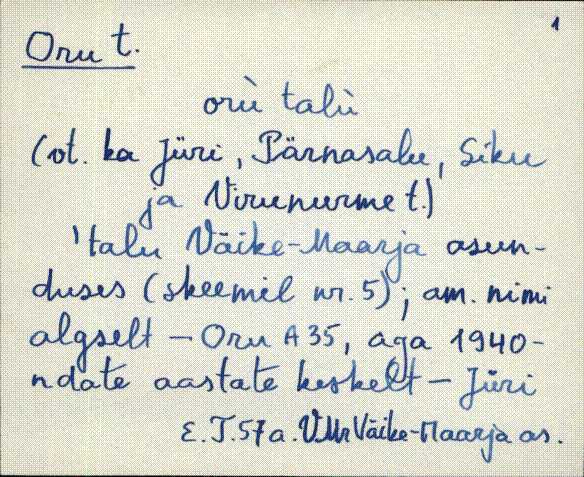 1
Oru t.
orù talù
(vt. ka Jüri, Pärnasalu, Siku
ja Virunurme t.)
'talu Väike-Maarja asun-
duses (skeemil nr. 5); am. nimi
algselt – Oru A35, aga 1940-
ndate aastate keskelt – Jüri
E. T. 57 a. VMr Väike-Maarja as.